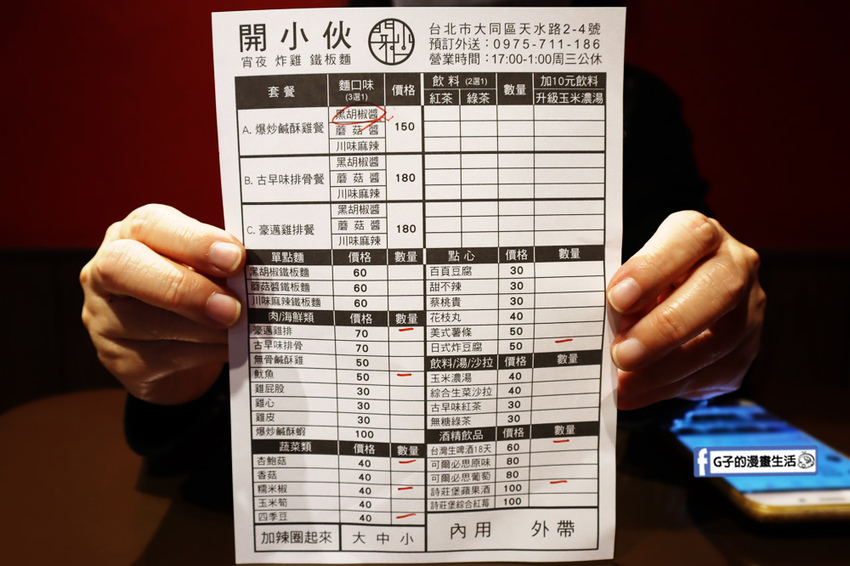 開小伙
宵夜 炸雞 鐵板麵
開小伙
台北市大同區天水路2-4號
預訂外送：0975-711-186
營業時間：17:00-1:00周三公休
套餐 麵口味 (3選1) 價格 飲料 (2選1) 紅茶 綠茶 數量 加10元飲料 升級玉米濃湯
A. 爆炒鹹酥雞餐 黑胡椒醬 蘑菇醬 川味麻辣 150
B. 古早味排骨餐 黑胡椒醬 蘑菇醬 川味麻辣 180
C. 豪邁雞排餐 黑胡椒醬 蘑菇醬 川味麻辣 180
單點麵 價格 數量
黑胡椒鐵板麵 60
蘑菇醬鐵板麵 60
川味麻辣鐵板麵 60
肉/海鮮類 價格 數量
豪邁雞排 70
古早味排骨 70
無骨鹹酥雞 50
魷魚 50
雞屁股 30
雞心 30
雞皮 30
爆炒鹹酥蝦 100
蔬菜類 價格 數量
杏鮑菇 40
香菇 40
糯米椒 40
玉米筍 40
四季豆 40
加辣圈起來 大 中 小
點心 價格 數量
百頁豆腐 30
甜不辣 30
蔡桃貴 30
花枝丸 40
美式薯條 50
日式炸豆腐 50
飲料/湯/沙拉 價格 數量
玉米濃湯 40
綜合生菜沙拉 40
古早味紅茶 30
無糖綠茶 30
酒精飲品 價格 數量
台灣生啤酒18天 60
可爾必思原味 80
可爾必思葡萄 80
詩莊堡蘋果酒 100
詩莊堡綜合紅莓 100
內用 外帶
f G子的漫畫生活